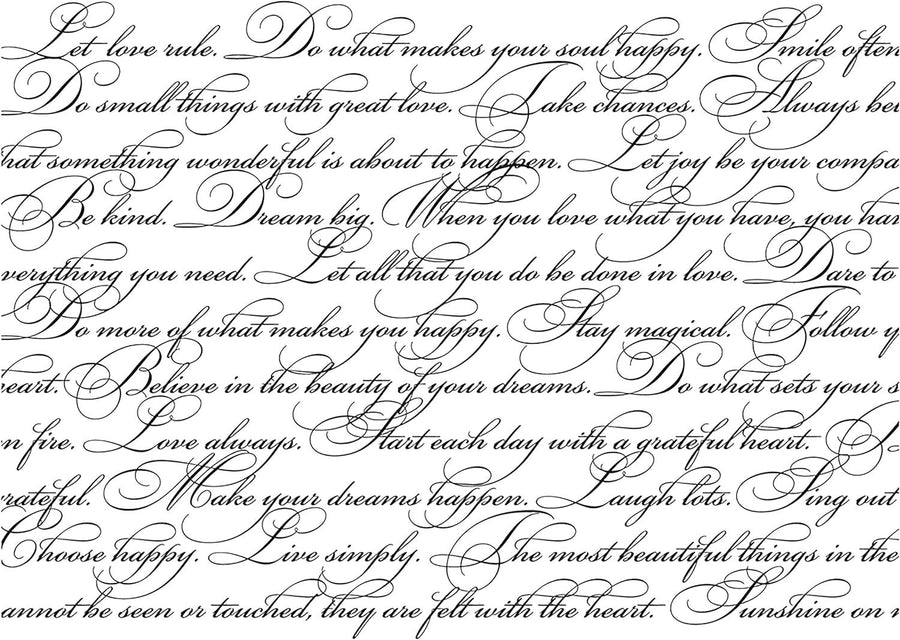 Let love rule. Do what makes your soul happy. Smile often
Do small things with great love. Take chances. Always bel
hat something wonderful is about to happen. Let joy be your compa
Be kind. Dream big. When you love what you have, you hav
verything you need. Let all that you do be done in love. Dare to
Do more of what makes you happy. Stay magical. Follow y
eart. Believe in the beauty of your dreams. Do what sets your s
n fire. Love always. Start each day with a grateful heart.
rateful. Make your dreams happen. Laugh lots. Sing out
Choose happy. Live simply. The most beautiful things in the
annot be seen or touched, they are felt with the heart. Sunshine on